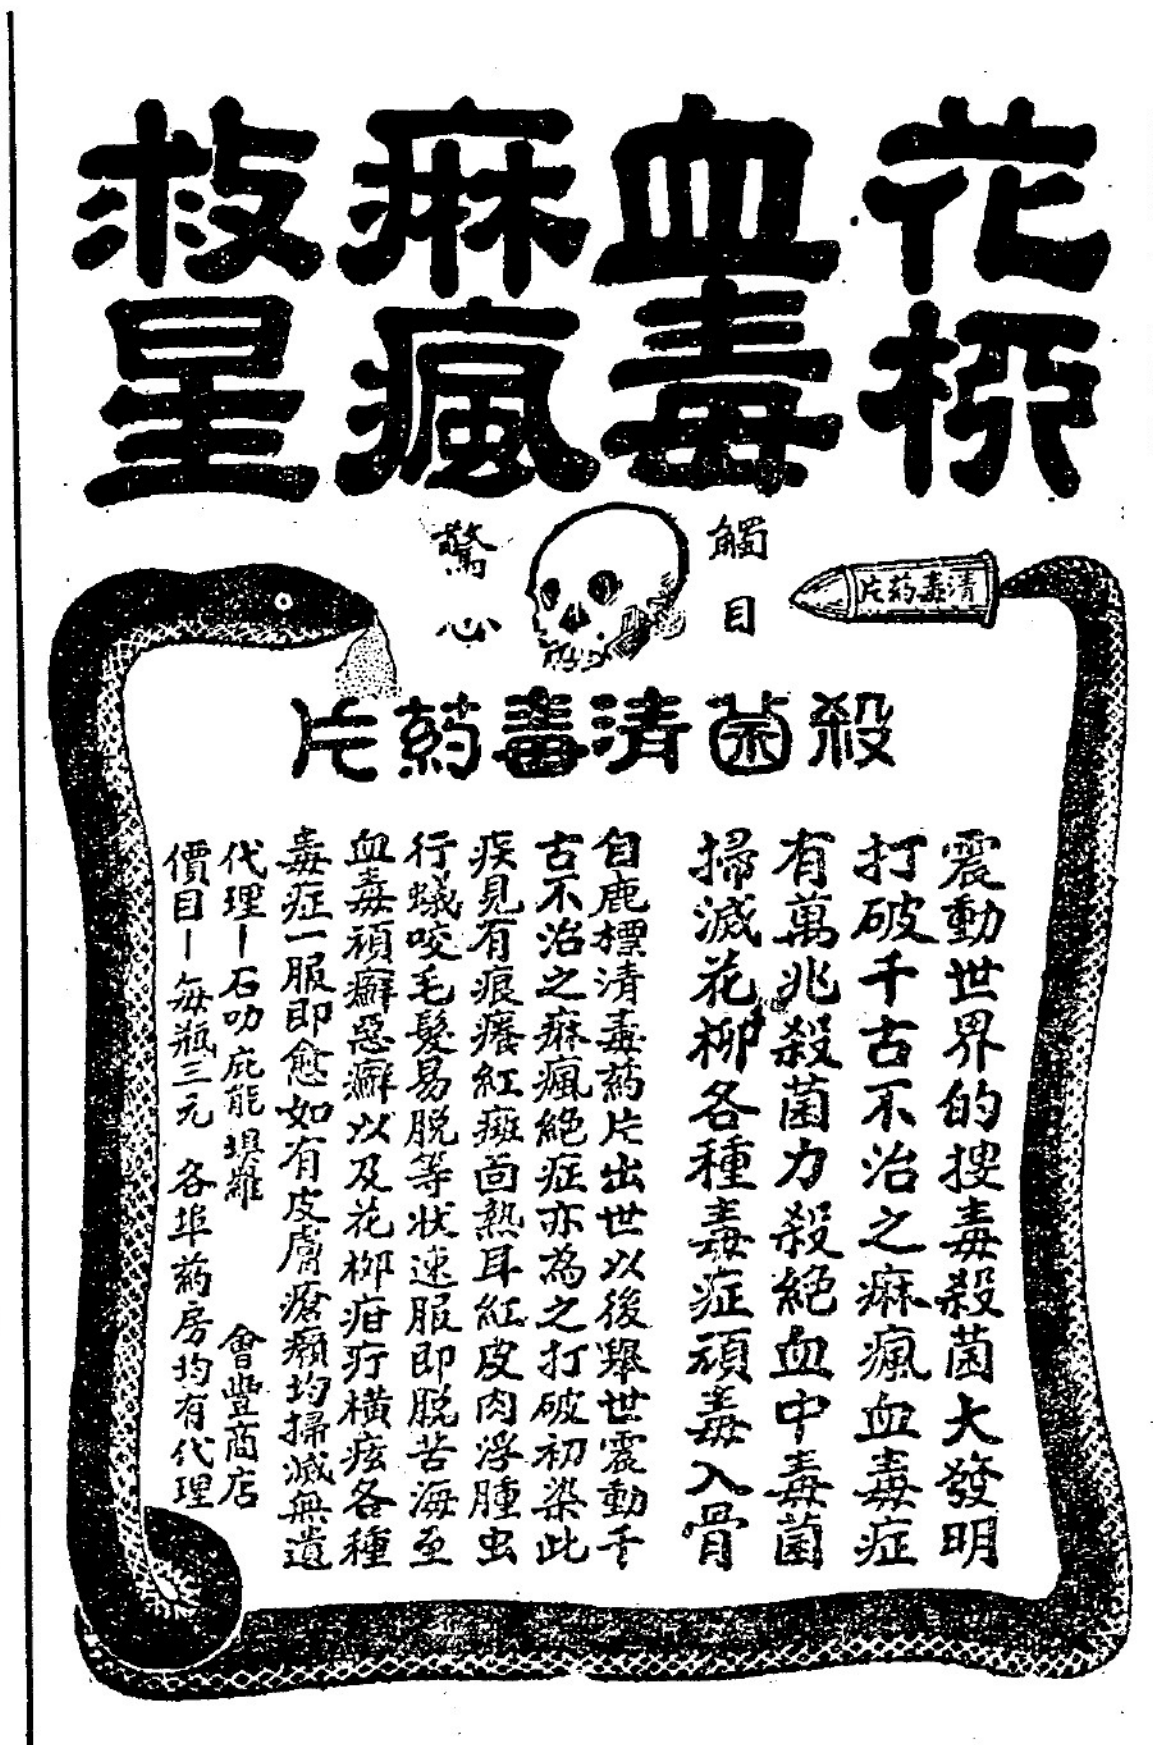 花柳
血毒
痳瘋
救星
觸目
驚心
清毒药片
殺菌清毒药片
震動世界的搜毒殺菌大發明
打破千古不治之痳瘋血毒症
有萬兆殺菌力殺絕血中毒菌
掃滅花柳各種毒症頑毒入骨
自鹿標清毒药片出世以後舉世震動千
古不治之痳瘋絕症亦為之打破初染此
疾見有痕癢紅斑面熱耳紅皮肉浮腫虫
行蟻咬毛髮易脫等狀速服即脫苦海至
血毒頑癬惡癬以及花柳疳疔橫痃各種
毒症一服即愈如有皮膚瘡癩均掃滅無遺
代理－石叻庇能 會豐商店
價目－每瓶三元 各埠药房均有代理